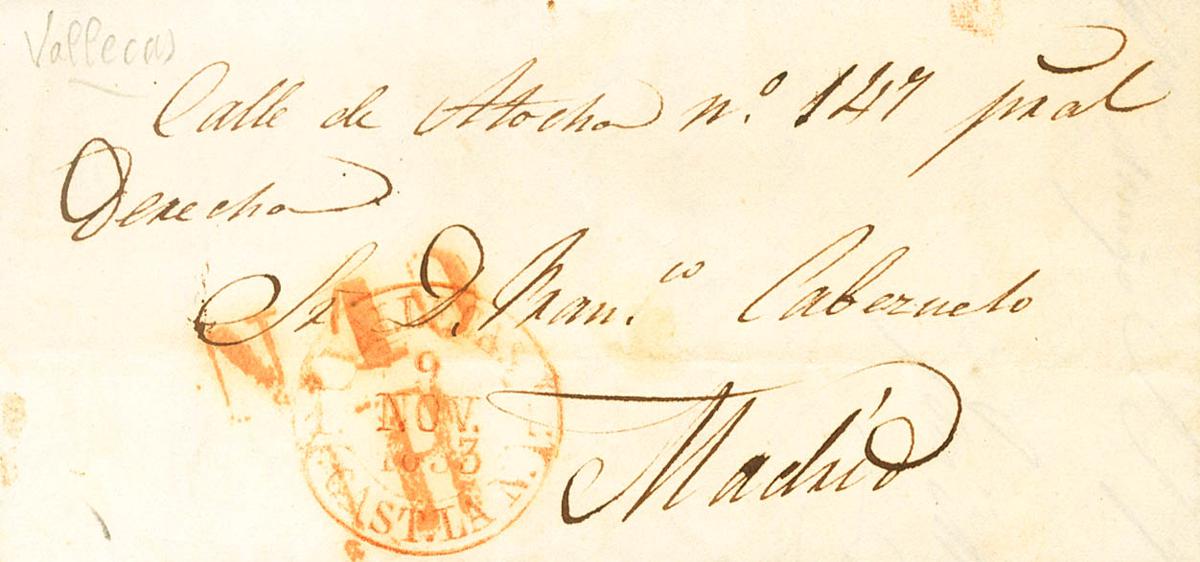 Vallecas
Calle de Atocha nº. 147 pral
Derecha
Sr D. Franco Cabezuelo
Madrid
9
NOV.
1853
CAST. LA N.